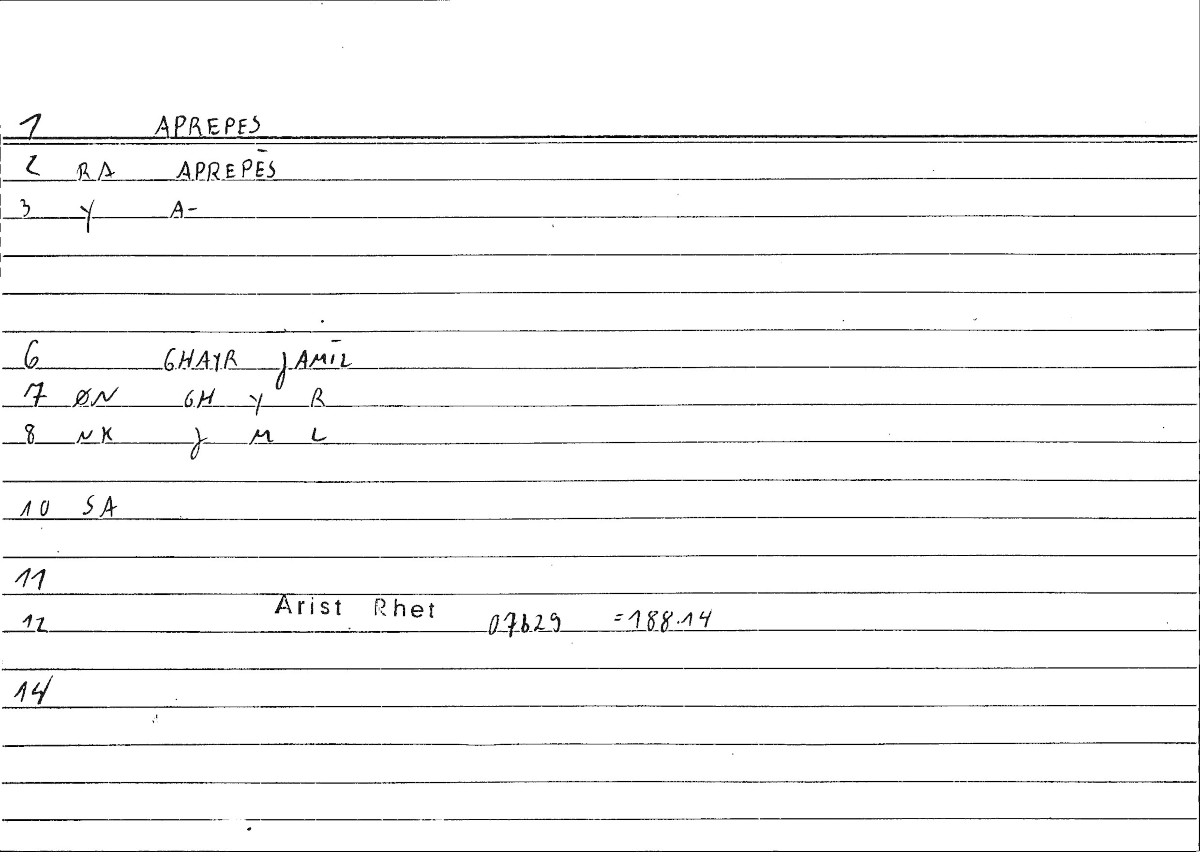 1 APREPES
2 RA APREPĒS
3 Y A-
6 GHAYR JAMĪL
7 ØN GH Y R
8 NK J M L
10 SA
11
12 Arist Rhet 07b29 =188.14
14